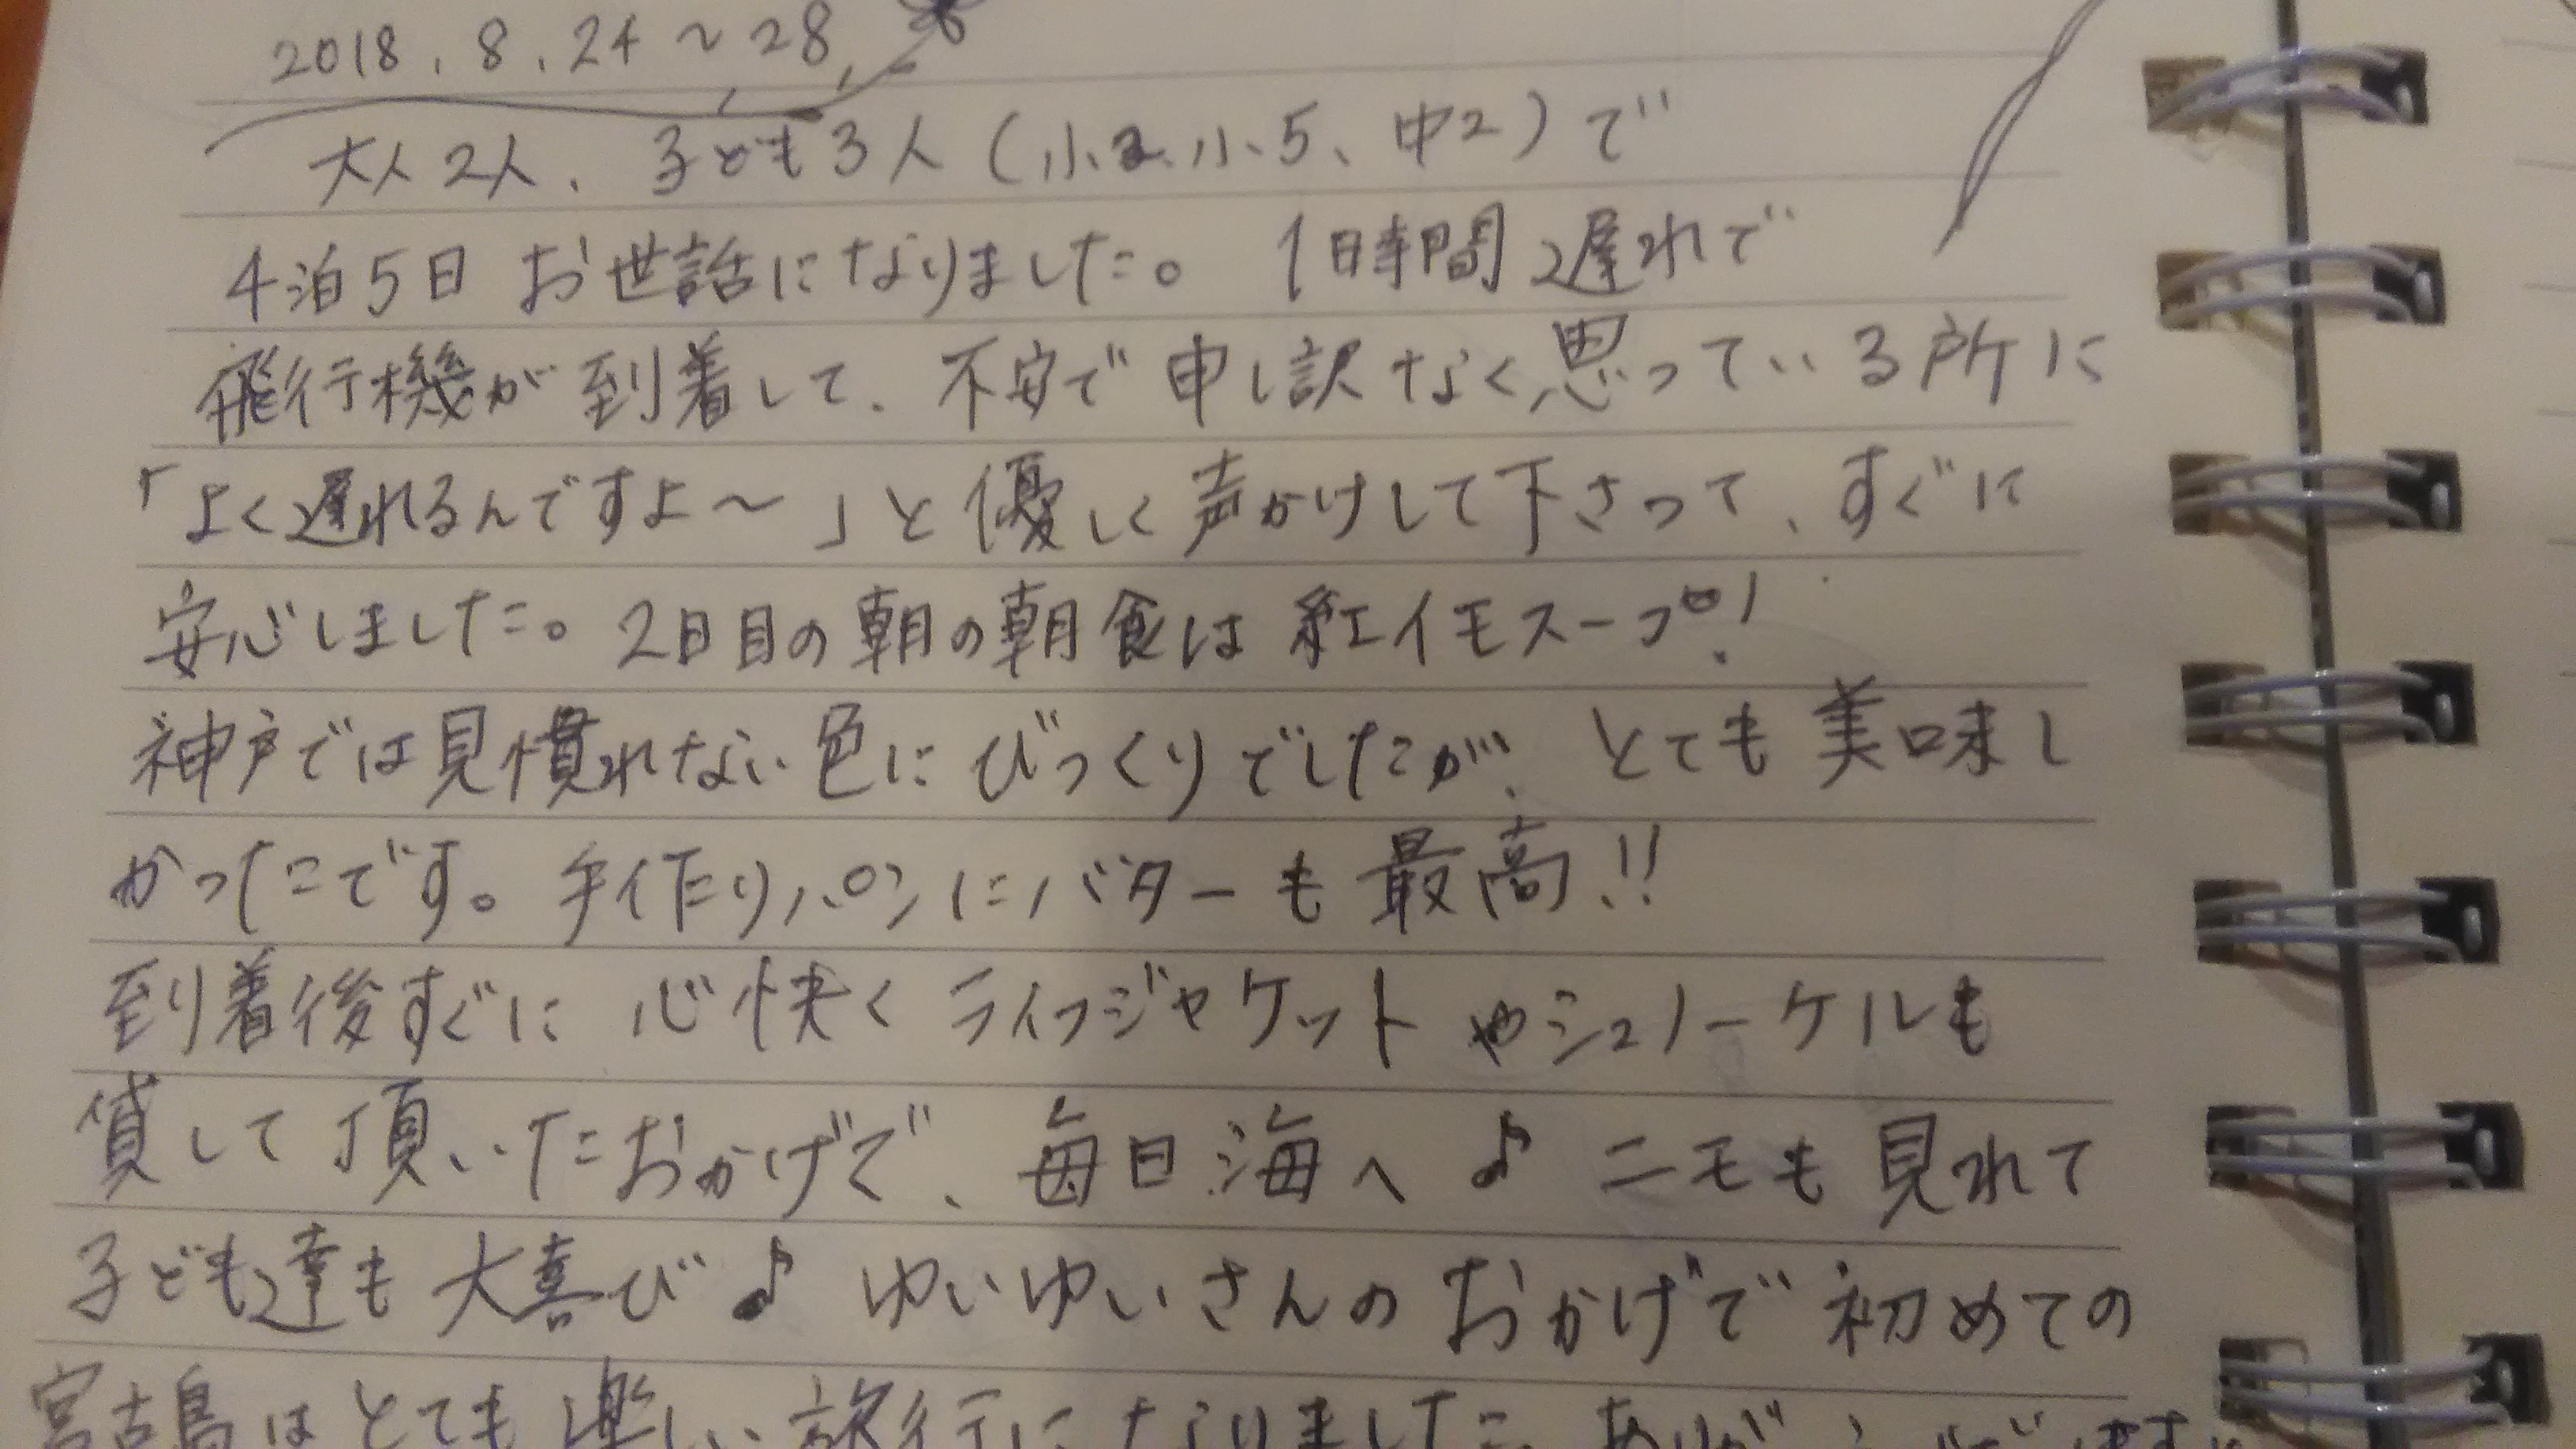 2018.8.24〜28
大人2人、子ども3人(小2、小5、中2)で
4泊5日お世話になりました。1時間遅れで
飛行機が到着して、不安で申し訳なく思っている所に
「よく遅れるんですよ〜」と優しく声かけして下さって、すぐに
安心しました。2日目の朝の朝食は紅イモスープ!
神戸では見慣れない色にびっくりでしたが、とても美味し
かったです。手作りパンにバターも最高!!
到着後すぐに心快くライフジャケットやシュノーケルも
貸して頂いたおかげで、毎日海へ♪ニモも見れて
子ども達も大喜び♪ゆいゆいさんのおかげで初めての
宮古島はとても楽しい旅行になりました